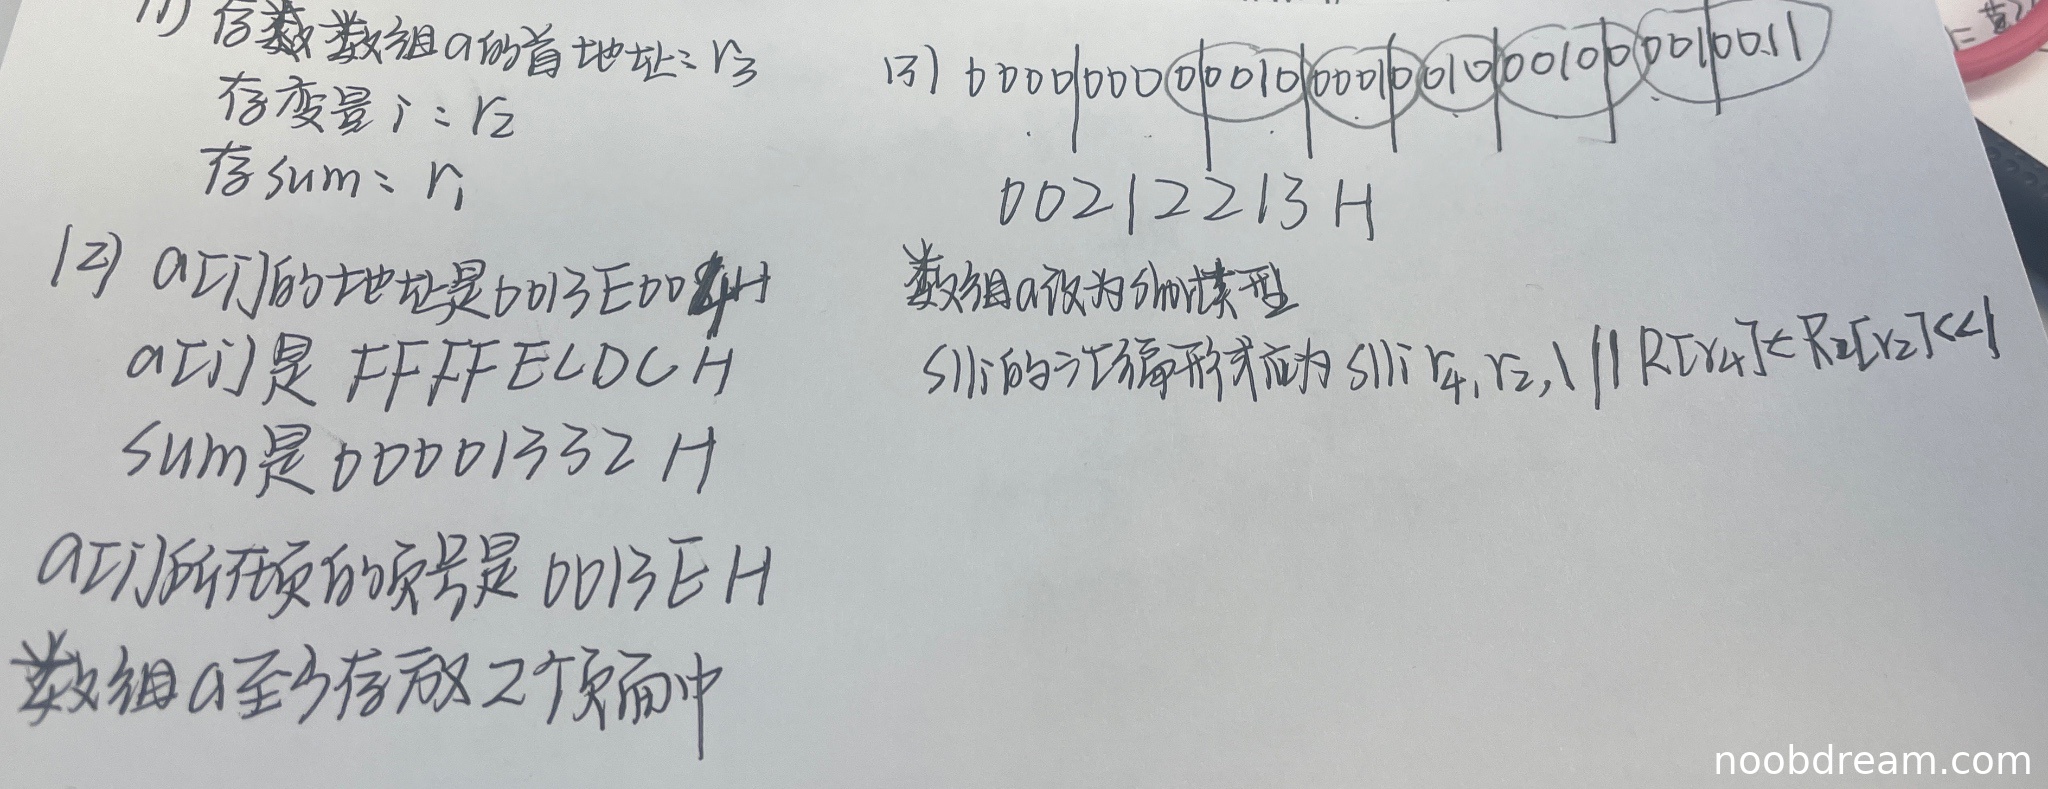 (1) 存数数组a的首地址:r3
存变量i:r2
存sum:r1
(2) a[i]的地址是0013E004H
a[i]是 FFFFECDCH
sum是00001332H
a[i]所在页的页号是0013EH
数组a至少存放2个页面中
(3) 0000|0000|0010|0001|0010|0010|0001|0011
00212213H
数组a改为short模型
slli的汇编形式应为slli r4,r2,1 // R[r4]←R2[r2]<<1
noobdream.com